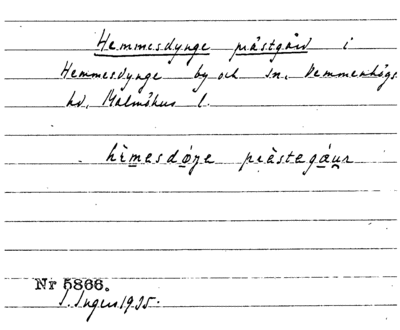 Hemmesdynge prästgård i
Hemmesdynge by och sn, Vemmenhögs
hd, Malmöhus l.
hɛ̀mesdøŋe prästegáur
Nr 5866.
S. Ingers 1935.